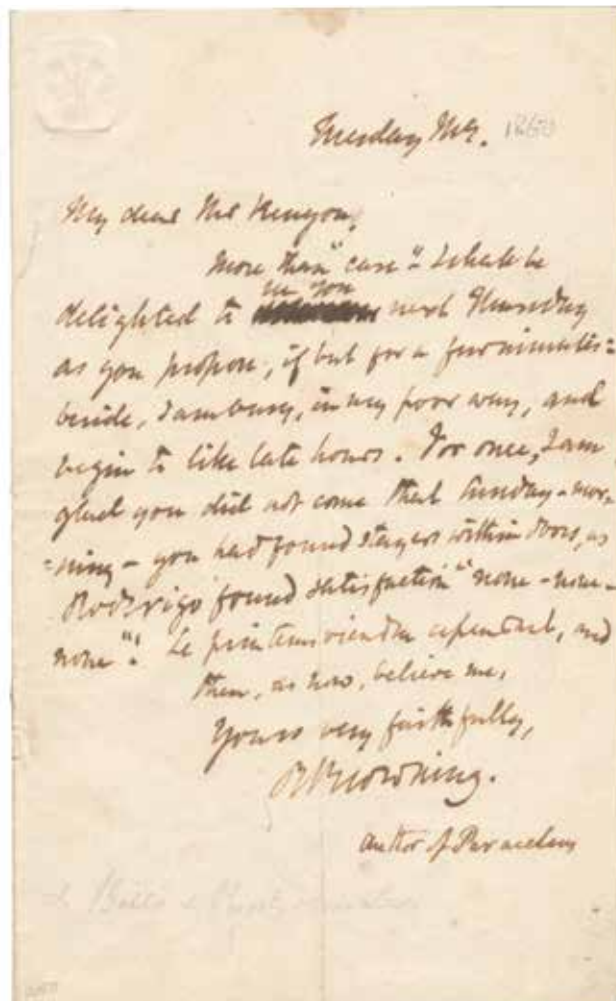 Tuesday Mg. 1860
My dear Mr Kenyon,
More than "case" – I shall be
see you
delighted to next Thursday
as you propose, if but for a few minutes:
beside, I am busy, in my poor way, and
begin to like late hours. For once, I am
glad you did not come that Sunday-mor-
=ning – you had found stayers within doors, as
Roderigo found satisfaction "none – none –
none"! Le printems viendra cependant, and
then, as now, believe me,
Yours very faithfully,
RBrowning.
author of Paracelsus